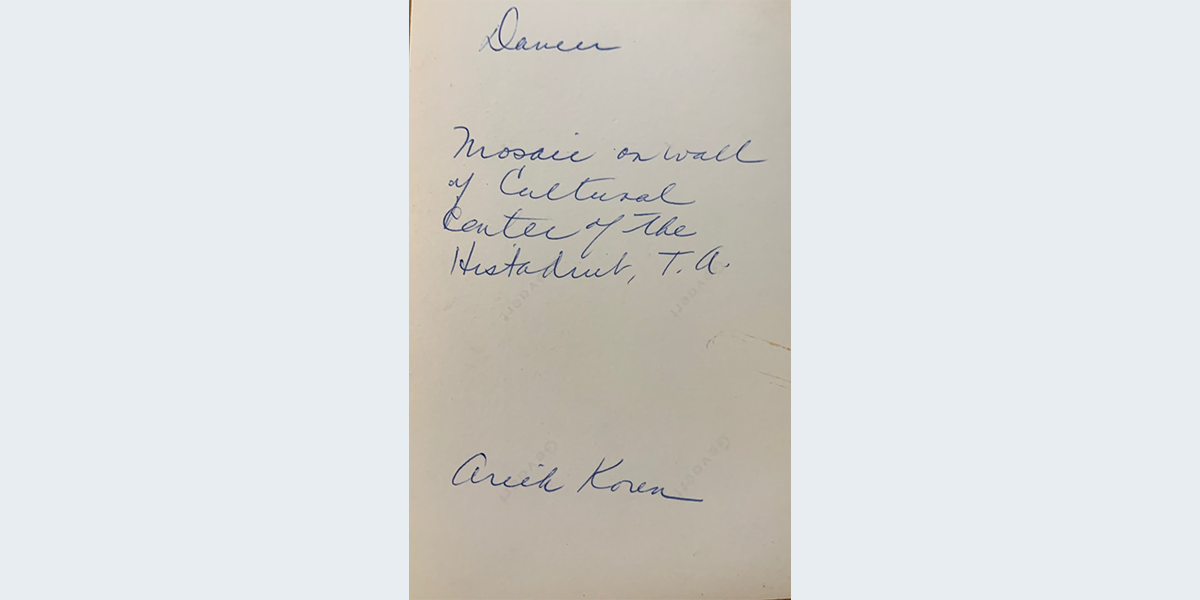 Dancer
Mosaic on wall
of Cultural
Center of the
Histadrut, T.A.
Arieh Koren